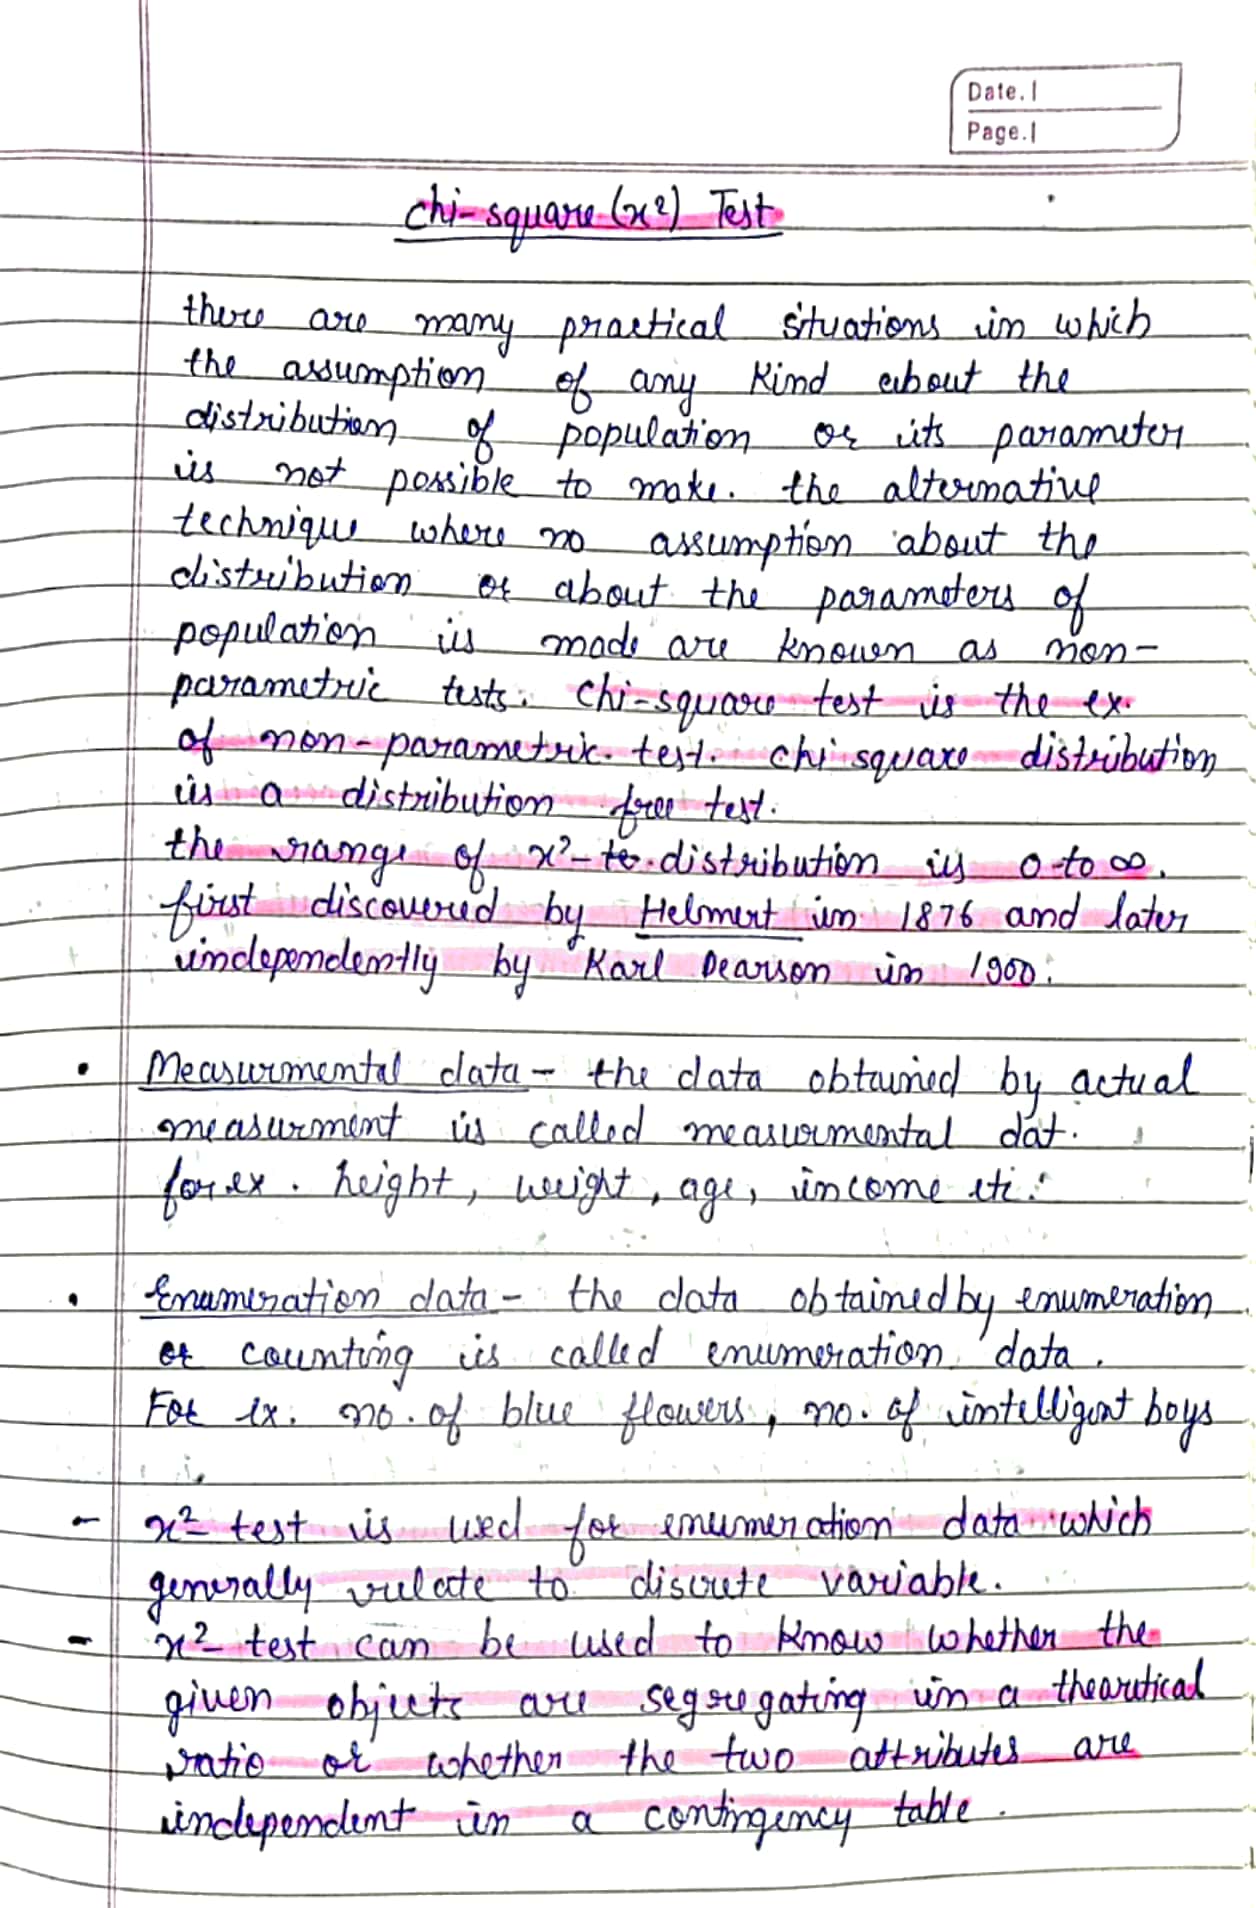 Date.
Page.
Chi-square (x²) Test
there are many practical situations in which
the assumption of any kind about the
distribution of population or its parameter
is not possible to make. the alternative
technique where no assumption about the
distribution or about the parameters of
population is made are known as non-
parametric tests. Chi-square test is the ex.
of non-parametric test. chi square distribution
is a distribution free test.
the range of x²- distribution is 0 to ∞.
first discovered by Helmert in 1876 and later
independently by Karl Pearson in 1900.
• Measurmental data - the data obtained by actual
measurment is called measurmental dat.
for ex. height, weight, age, income etc.
• Enumeration data - the data obtained by enumeration
or counting is called enumeration data.
For ex. no. of blue flowers, no. of intelligent boys
- x² test is used for enumeration data which
generally relate to discrete variable.
- x² test can be used to know whether the
given objects are segregating in a theoretical
ratio or whether the two attributes are
independent in a contingency table.